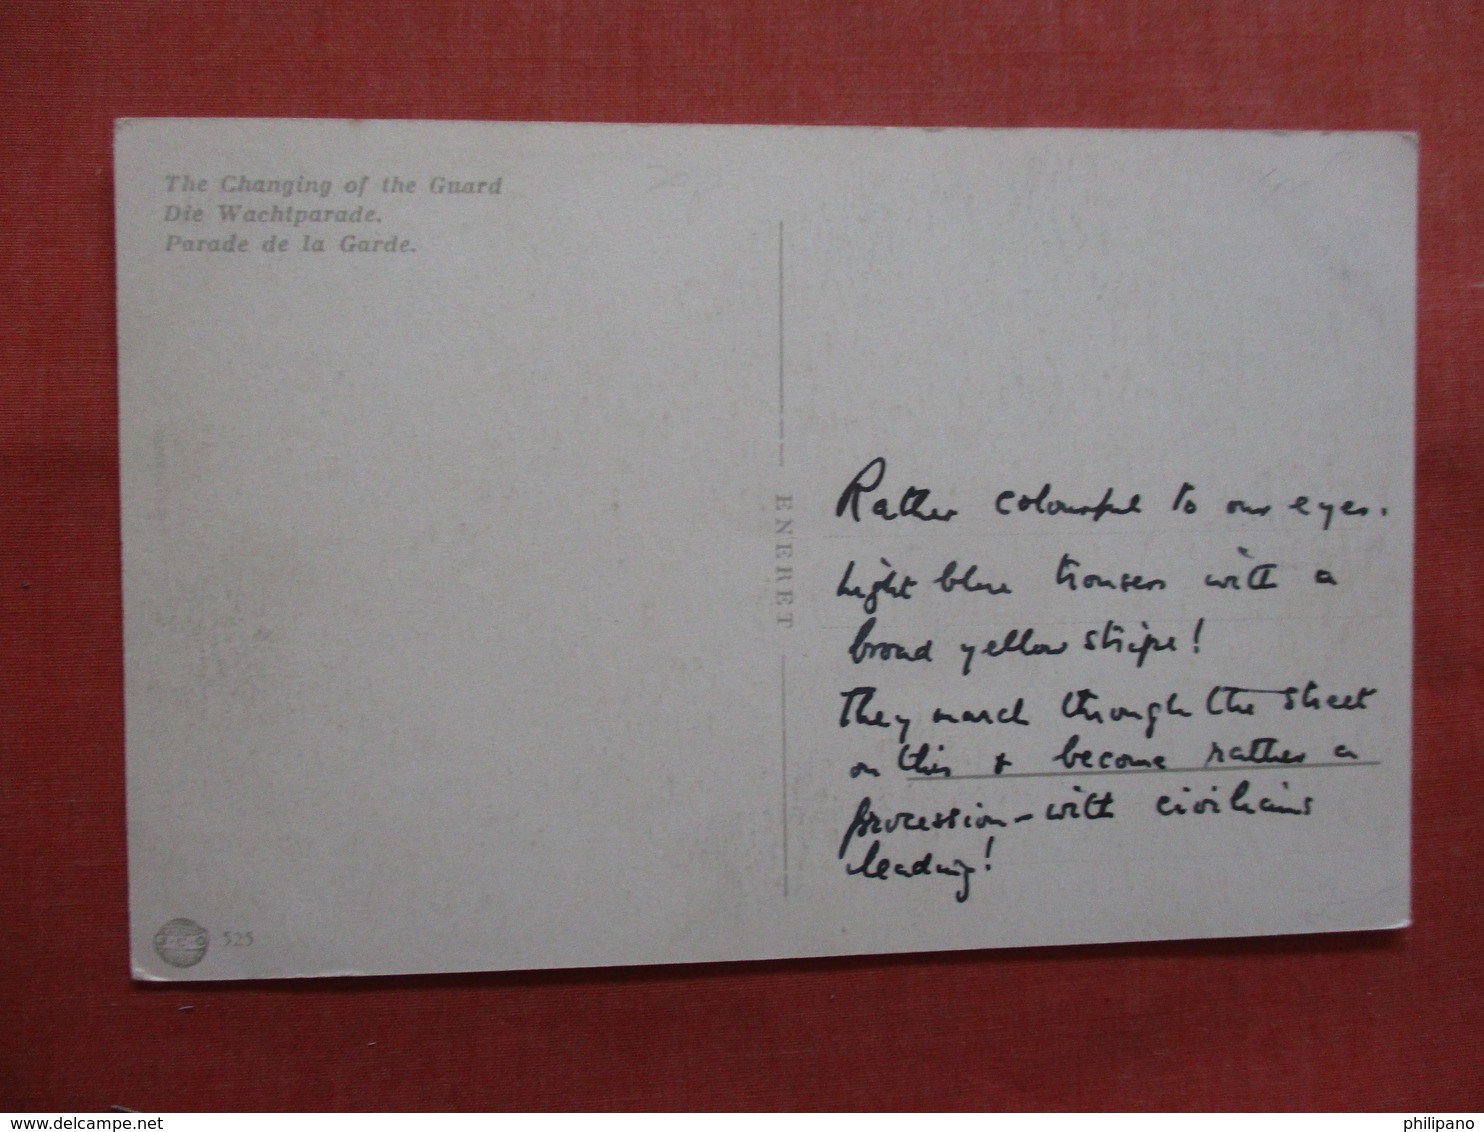 The Changing of the Guard
Die Wachtparade.
Parade de la Garde.
ENERET
Rather colourful to our eyes.
Light blue trousers with a
broad yellow stripe!
They march through the street
on this & become rather a
procession - with civilians
leading!
J-C-O 525
www.delcampe.net
philipano